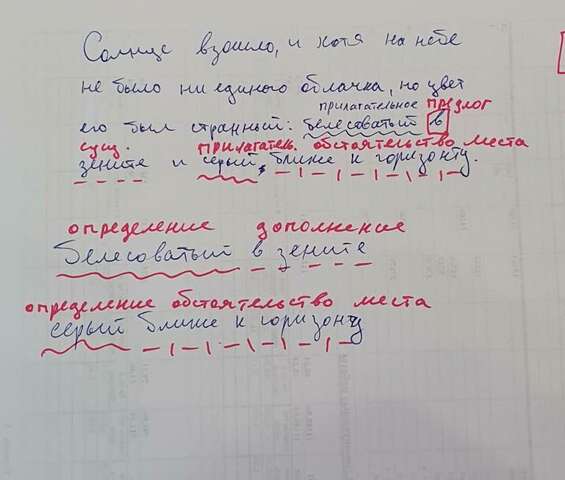 Солнце взошло, и хотя на небе
не было ни единого облачка, но цвет
прилагательное предлог
его был странный: белесоватый в
сущ. прилагательн. обстоятельство места
зените и серый, ближе к горизонту.
определение дополнение
белесоватый в зените
определение обстоятельство места
серый ближе к горизонту